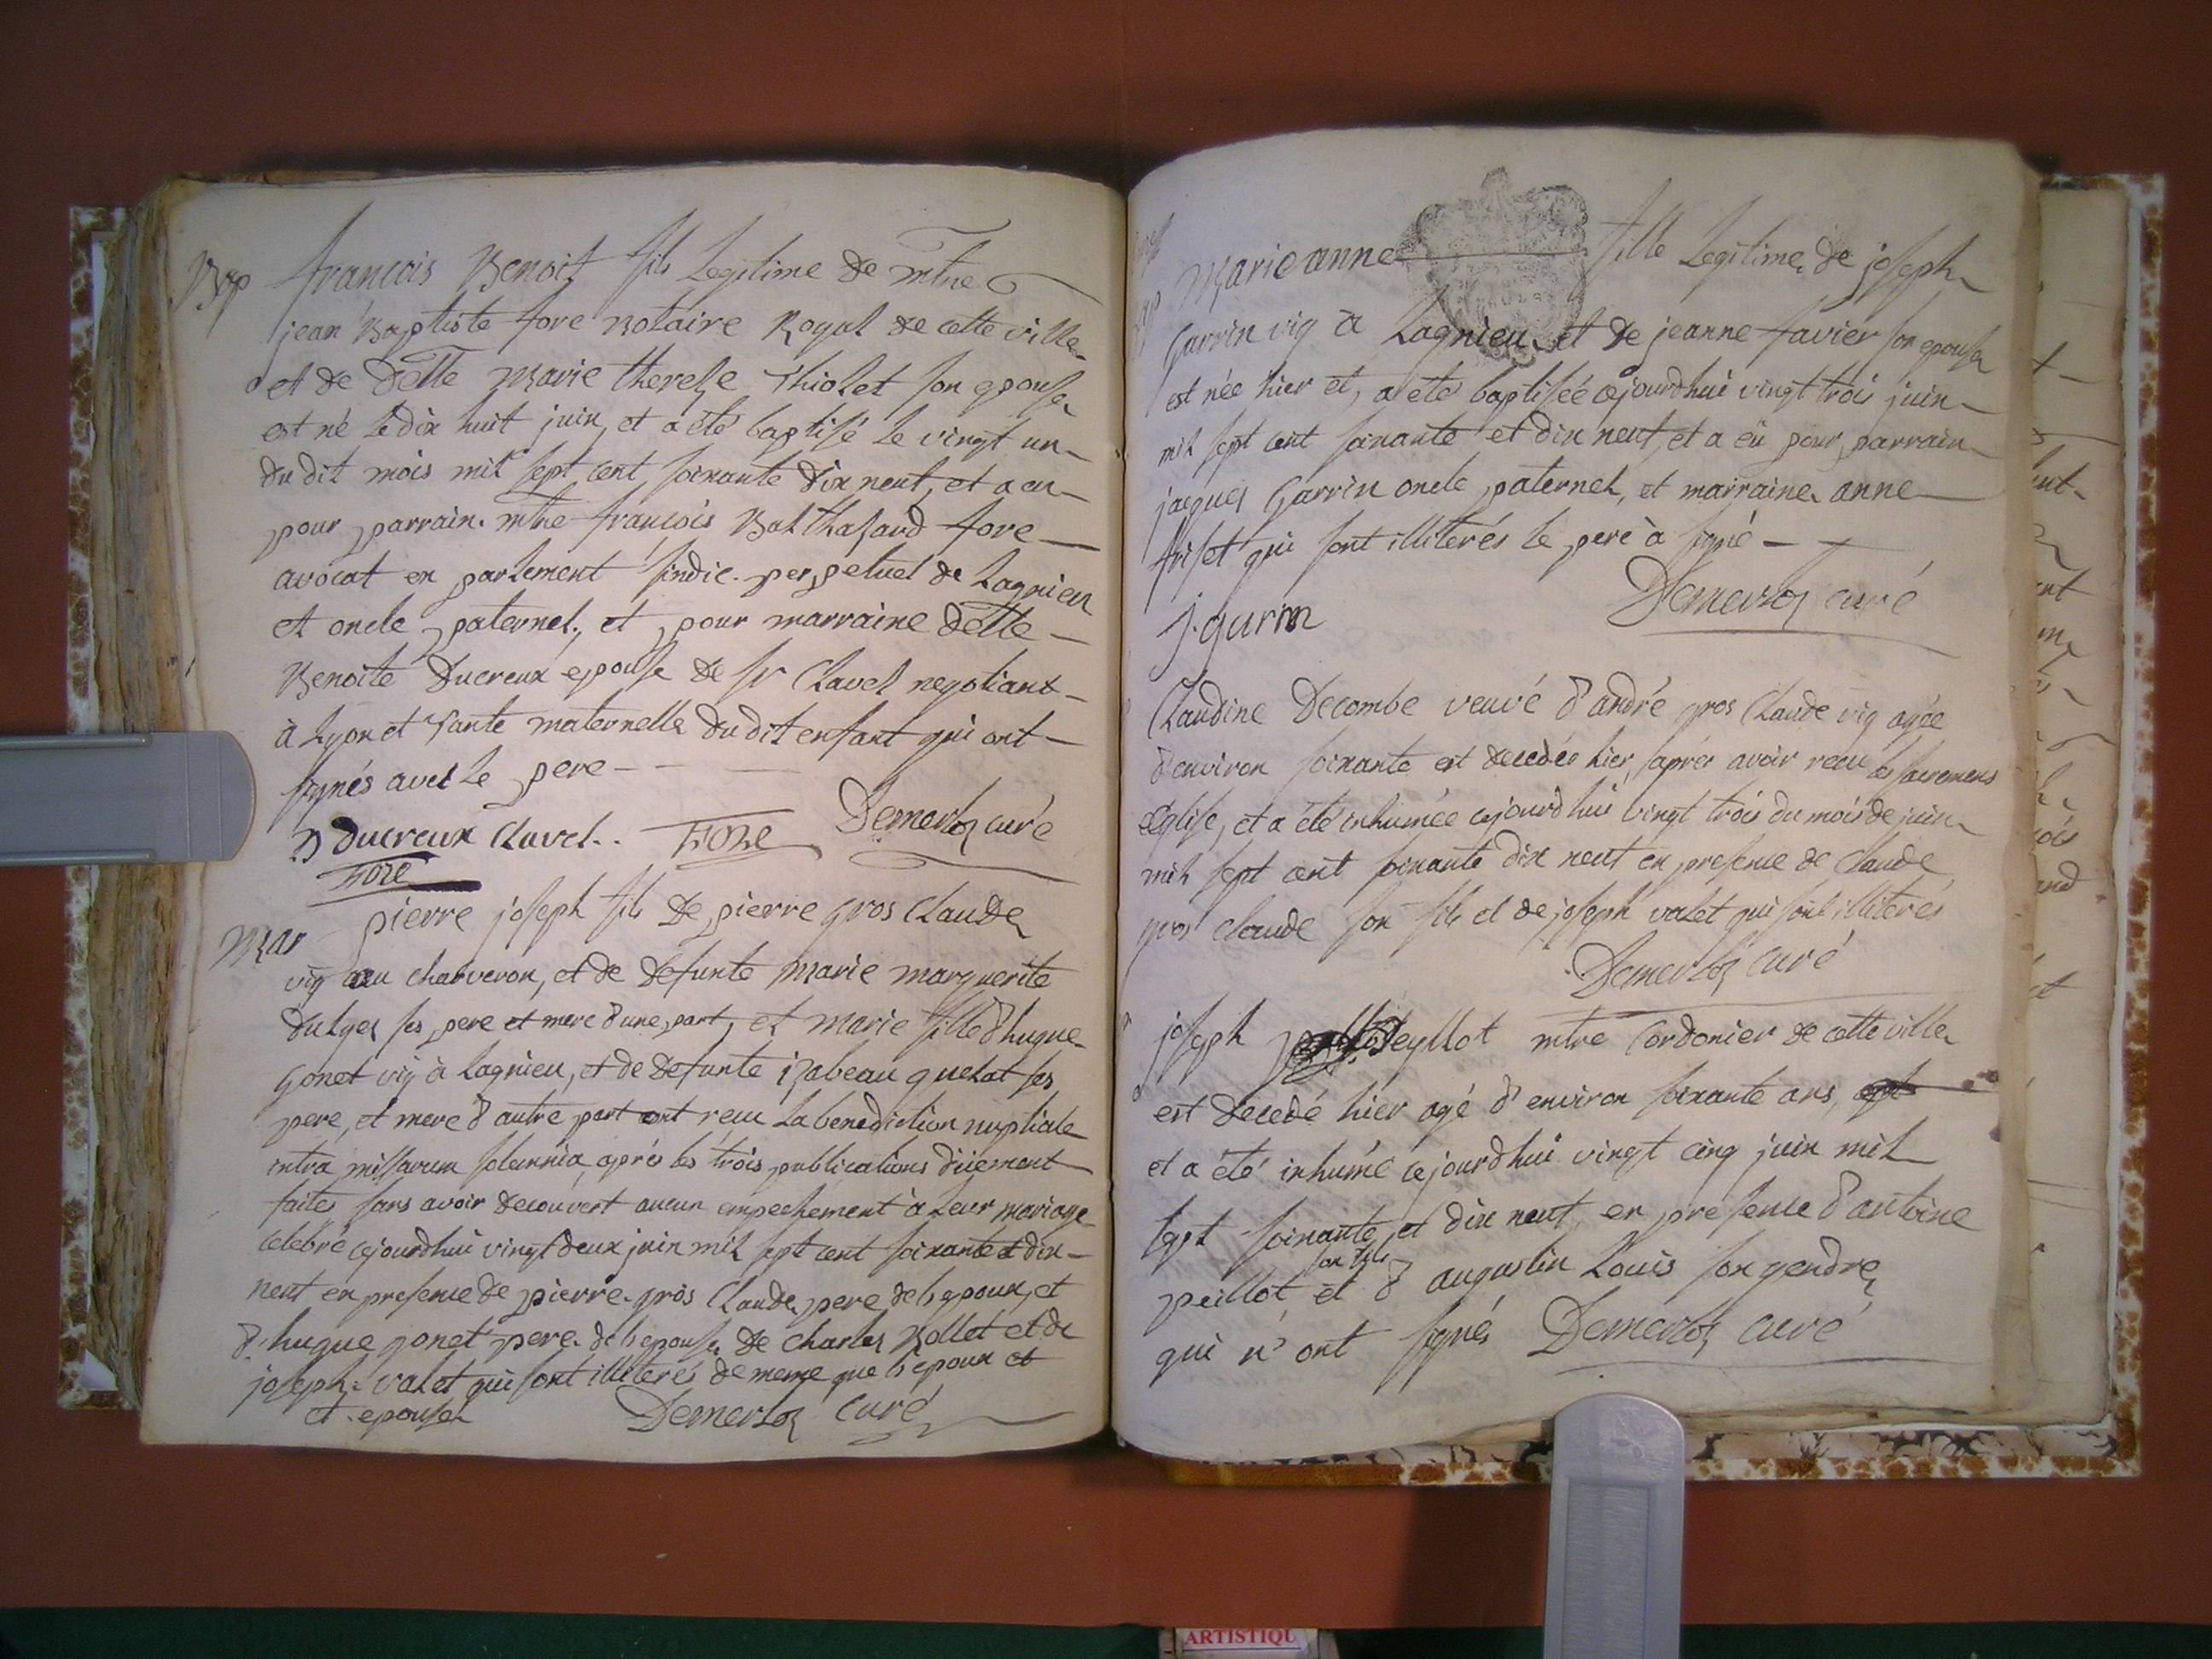 Bap
francois Benoit fils Legitime de mtre
jean Baptiste fore notaire Royal de cette ville
et de delle Marie therese Thiolet son epouse
est né le dix huit juin, et a été baptisé le vingt un
du dit mois mil sept cent soixante dix neuf, et a eu
pour parrain mtre françois Balthasard fore
avocat en parlement sindic perpetuel de Lagnieu
et oncle paternel, et pour marraine delle
Benoite Ducreux epouse de sr Clavel negotiant
à Lyon et Tante maternelle du dit enfant qui ont
signés avec le pere
B Ducreux Clavel.. FORE Demerloz curé
FORE
Mar
pierre joseph fils de pierre gros Claude
vig au charveron, et de defunte Marie marguerite
Dulger ses pere et mere d'une part, et Marie fille d'hugue
gonet vig à Lagnieu, et de defunte izabeau quelat ses
pere, et mere d'autre part ont recu la benediction nuptiale
intra missarum solemnia, après les trois publications düement
faites sans avoir decouvert aucun empechement à leur mariage
celebré cejourdhui vingt deux juin mil sept cent soixante et dix
neuf en presence de pierre gros Claude pere de l'epoux, et
d'hugue gonet pere de l'epouse de Charles Rollet et de
joseph valet qui sont illiterés de meme que l'epoux et
et epouse Demerloz Curé
Bap
Marie anne fille Legitime de joseph
Garrin vig à Lagnieu et de jeanne favier son epouse
est née hier et, a été baptiséé cejourdhui vingt trois juin
mil sept cent soixante et dix neuf, et a eü pour parrain
jacques Garrin oncle paternel, et marraine anne
friset qui sont illiterés le pere à signé
J. garin Demerloz curé
Claudine Decombe veuvé d'andré gros Claude vig agée
d'environ soixante est decedée hier, aprés avoir recu les sacremens
Eglise, et a été inhumée cejourdhui vingt trois du mois de juin
mil sept cent soixante dix neuf en presence de Claude
gros claude son fils et de joseph valét qui sont illiterés
Demerloz Curé
joseph peyllot mtre Cordonier de cette ville
est decedé hier agé d'environ soixante ans,
et a été inhumé cejourdhui vingt cinq juin mil
sept soixante et dix neuf, en presence d'antoine
son fils
peillot, et d'augustin Louis son gendre
qui n'ont signés Demerloz Curé
ARTISTIQU